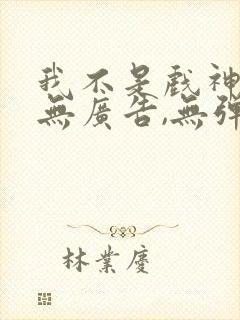 我不是戲神
無廣告,無彈
林業慶